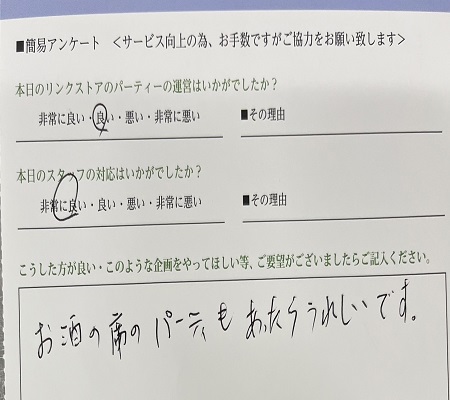 ■簡易アンケート　＜サービス向上の為、お手数ですがご協力をお願い致します＞
本日のリンクストアのパーティーの運営はいかがでしたか？
非常に良い・良い・悪い・非常に悪い　■その理由
本日のスタッフの対応はいかがでしたか？
非常に良い・良い・悪い・非常に悪い　■その理由
こうした方が良い・このような企画をやってほしい等、ご要望がございましたらご記入ください。
お酒の席のパーティもあったらうれしいです。